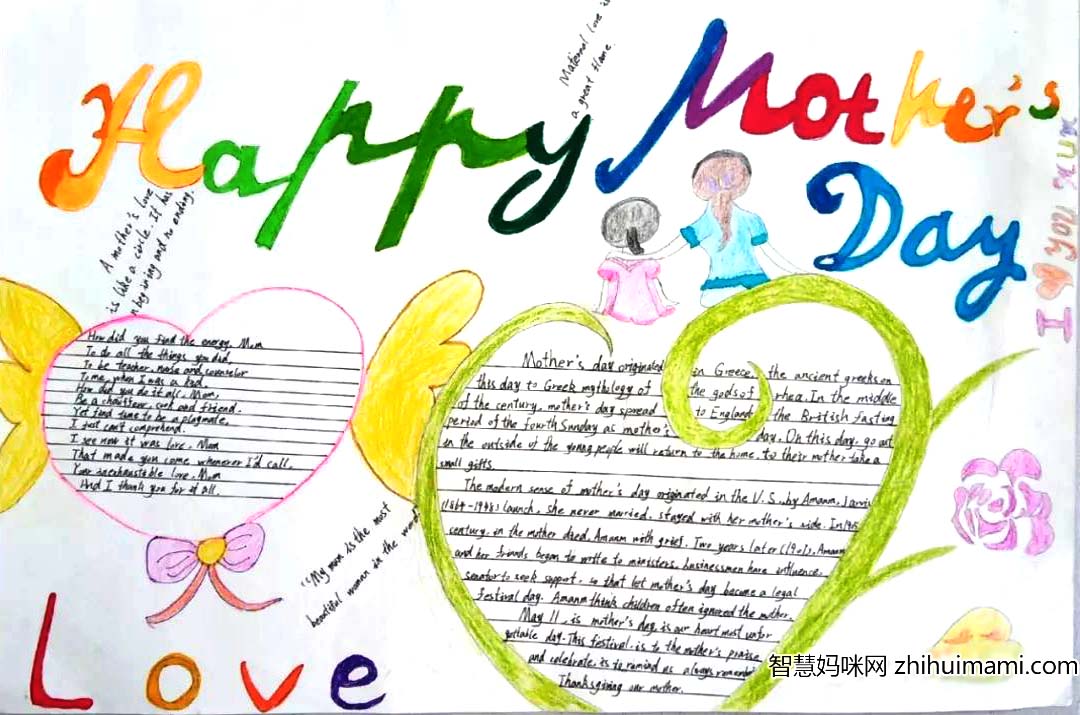 Happy Mother's
Day
Maternal love is
a great flame.
I you Mum
A mother's love
is like a circle. It has
n beginning and no ending.
How did you find the energy, Mom
To do all the things you did,
To be teacher, nurse and counselor
To me, when I was a kid.
How did you do it all, Mom,
Be a chauffeur, cook and friend.
Yet find time to be a playmate,
I just can't comprehend.
I see now it was love, Mom
That made you come whenever I'd call,
Your inexhaustible love, Mom
And I thank you for it all.
Mother's day originated in Greece, the ancient greeks on
this day to Greek mythology of the gods of rhea. In the middle
of the century, mother's day spread to England the British fasting
period of the fourth Sunday as mother's day. On this day, go out
in the outside of the young people will return to the home, to their mother take a
small gifts.
The modern sense of mother's day originated in the U.S., by Amanm, Jarvis
(1864-1948) launch, she never married, stayed with her mother's side. In
century, in the mother died, Amanm with grief. Two years later Amanm
and her friends began to write to ministers, businessmen have influence,
senator to seek support, so that let mother's day become a legal
festival day. Amanm think children often ignored the mother.
May 11, is mother's day, is our heart most
day. This festival, is to the mother's praise
and celebrate, is to remind us always remember
Thanksgiving our mother.
"My mom is the most
beautiful woman in the
Love
智慧妈咪网 zhihuimami.com